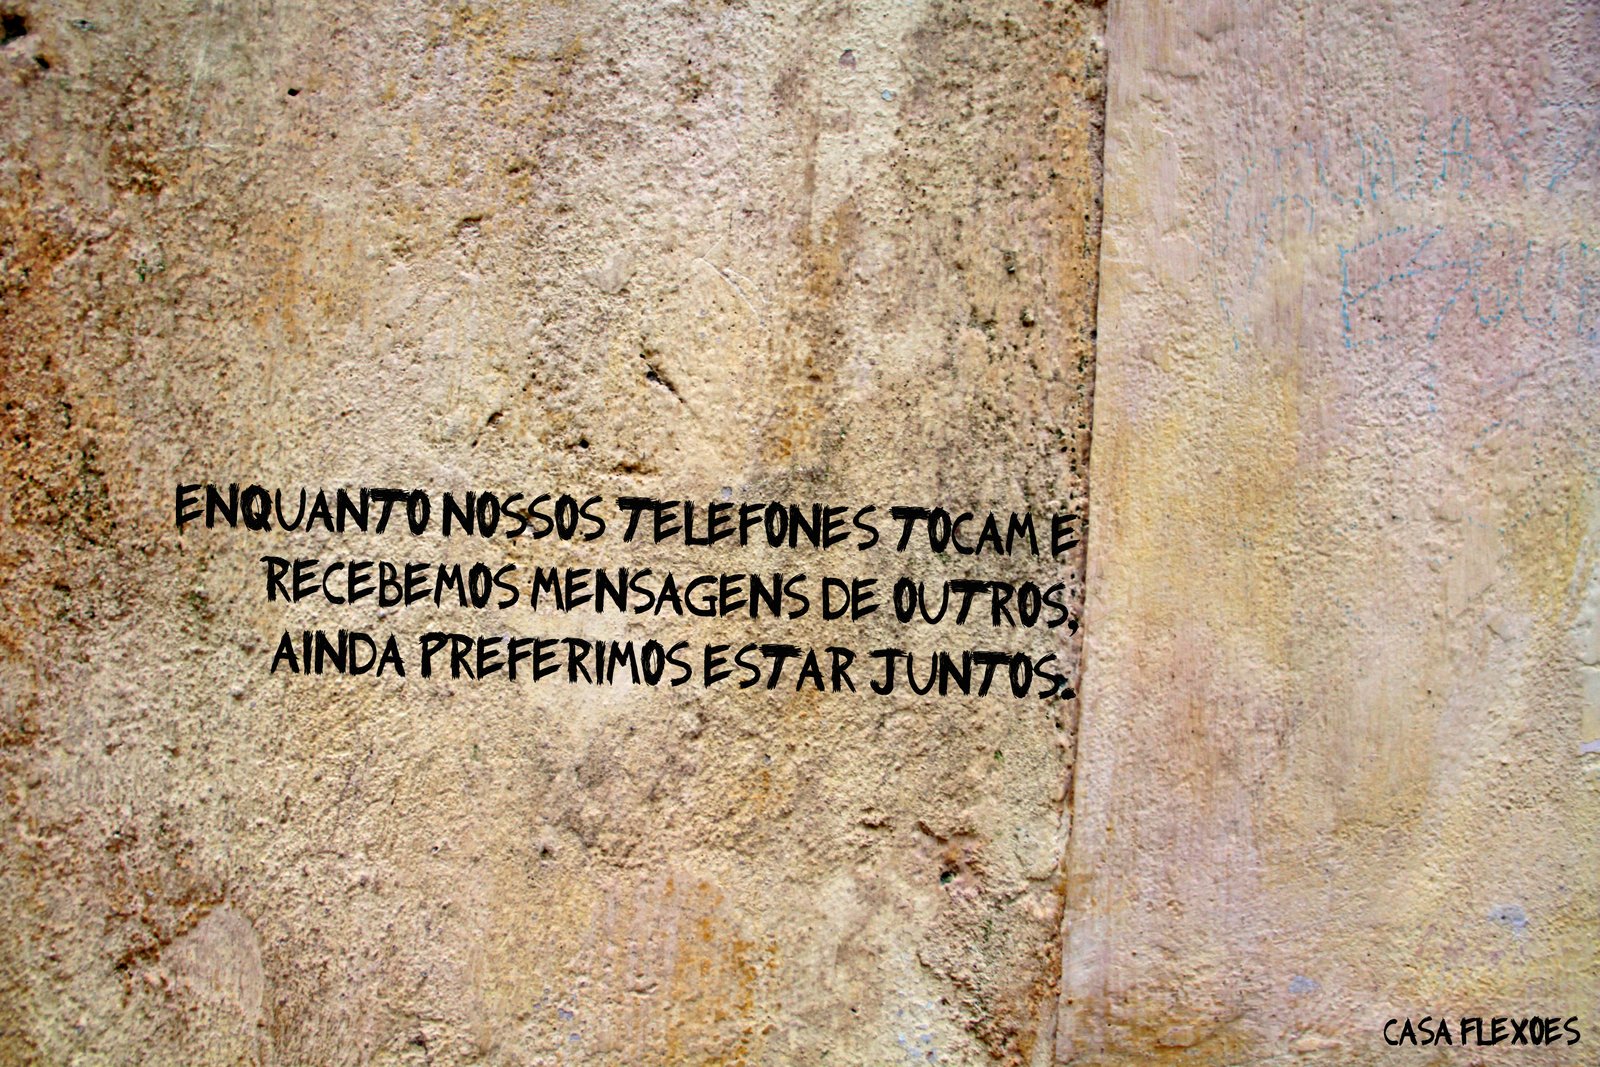 ENQUANTO NOSSOS TELEFONES TOCAM E
RECEBEMOS MENSAGENS DE OUTROS,
AINDA PREFERIMOS ESTAR JUNTOS.
CASA FLEXOES